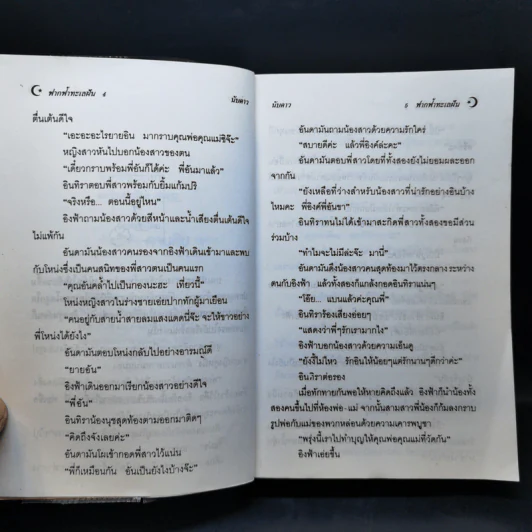 ฟากฟ้าทะเลฝัน 4
นับดาว
ตื่นเต้นดีใจ
“เอะอะอะไรยายอิน มากราบคุณพ่อคุณแม่ซิจ๊ะ”
หญิงสาวหันไปบอกน้องสาวของตน
“เดี๋ยวกราบพร้อมพี่อันก็ได้ค่ะ พี่อันมาแล้ว”
อินทิราตอบพี่สาวพร้อมกับยิ้มแก้มปริ
“จริงหรือ... ตอนนี้อยู่ไหน”
อิงฟ้าถามน้องสาวด้วยสีหน้าและน้ำเสียงตื่นเต้นดีใจ
ไม่แพ้กัน
อันดามันน้องสาวคนรองจากอิงฟ้าเดินเข้ามาและพบ
กับโหน่งซึ่งเป็นคนสนิทของพี่สาวตนเป็นคนแรก
“คุณอันคล้ำไปเป็นกองนะฮะ เที่ยวนี้”
โหน่งหญิงสาวในร่างชายเอ่ยปากทักผู้มาเยือน
“คนอยู่กับสายน้ำสายลมแสงแดดนี่จ๊ะ จะให้ขาวอย่าง
พี่โหน่งได้ยังไง”
อันดามันตอบโหน่งกลับไปอย่างอารมณ์ดี
“ยายอัน”
อิงฟ้าเดินออกมาเรียกน้องสาวอย่างดีใจ
“พี่อัน”
อินทิราน้องนุชสุดท้องตามออกมาติดๆ
“คิดถึงจังเลยค่ะ”
อันดามันโผเข้ากอดพี่สาวไว้แน่น
“พี่ก็เหมือนกัน อันเป็นยังไงบ้างจ๊ะ”
นับดาว
5 ฟากฟ้าทะเลฝัน
อันดามันถามน้องสาวด้วยความรักใคร่
“สบายดีค่ะ แล้วพี่อิงค์ล่ะคะ”
อันดามันตอบพี่สาวโดยที่ทั้งสองยังไม่ยอมผละออก
จากกัน
“ยังเหลือที่ว่างสำหรับน้องสาวที่น่ารักอย่างอินบ้าง
ไหมคะ พี่อิงค์พี่อันขา”
อินทิราทนไม่ได้เข้ามาสะกิดพี่สาวทั้งสองขอมีส่วน
ร่วมบ้าง
“ทำไมจะไม่มีล่ะจ๊ะ มานี่”
อันดามันดึงน้องสาวคนสุดท้องมาไว้ตรงกลาง ระหว่าง
ตนกับอิงฟ้า แล้วทั้งสองก็แกล้งกอดอินทิราแน่นๆ
“โอ๊ย... แบนแล้วค่ะคุณพี่”
อินทิราร้องเสียงอ่อยๆ
“แสดงว่าพี่ๆรักเรามากไง”
อิงฟ้าบอกน้องสาวด้วยความเอ็นดู
“ยังงี้ไม่ไหว รักอินให้น้อยๆแต่รักนานๆดีกว่าค่ะ”
อินทิราต่อรอง
เมื่อทักทายกันพอให้หายคิดถึงแล้ว อิงฟ้าก็นำน้องทั้ง
สองคนขึ้นไปที่ห้องพ่อ-แม่ จากนั้นสามสาวพี่น้องก็ก้มลงกราบ
รูปพ่อกับแม่ของพวกหล่อนด้วยความเคารพบูชา
“พรุ่งนี้เราไปทำบุญให้คุณพ่อคุณแม่ที่วัดกัน”
อิงฟ้าเอ่ยขึ้น